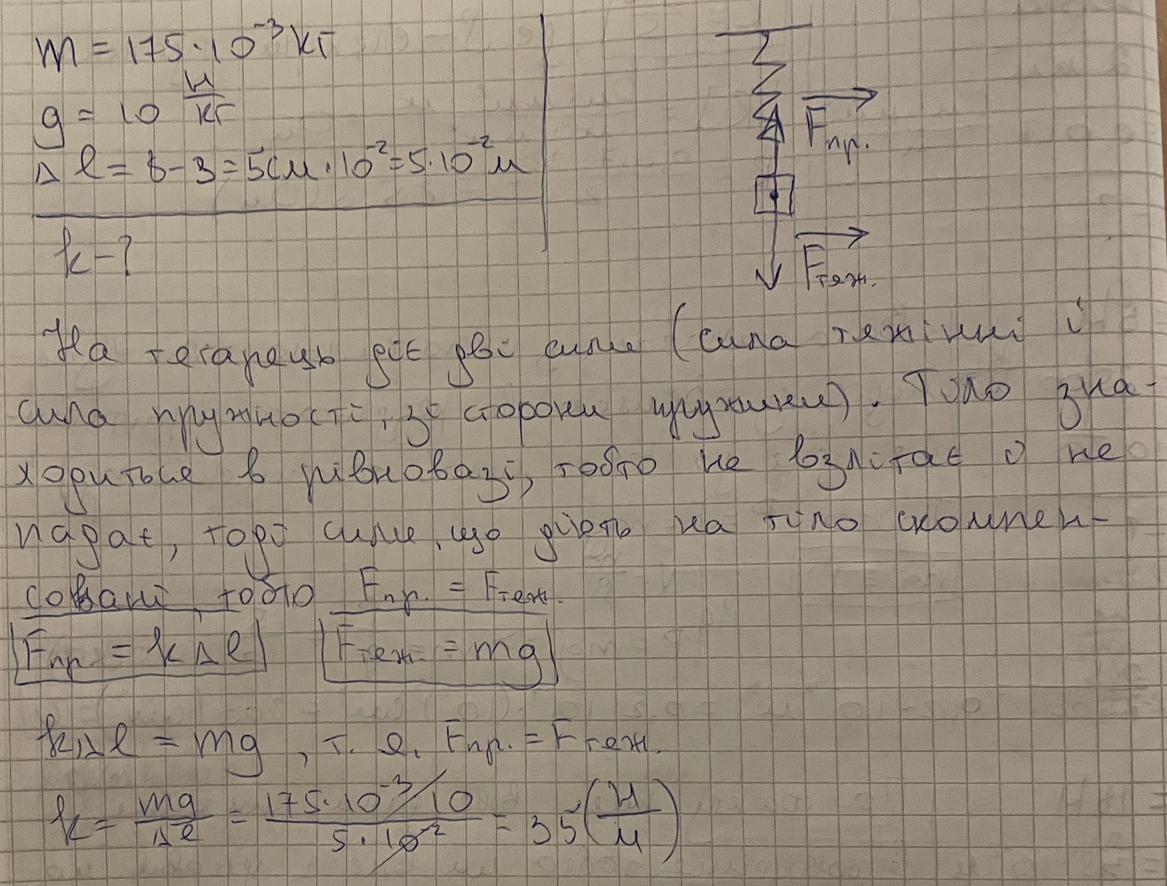 m = 175·10⁻³ кг
g = 10 Н/кг
Δl = 8-3 = 5см·10⁻² = 5·10⁻² м
k - ?
Fпр.
Fтяж.
На тягарець діє дві сили (сила тяжінні і
сила пружності, зі сторони пружини). Тіло зна-
ходиться в рівновазі, тобто не взлітає і не
падає, тоді сили, що діють на тіло скомпен-
совані, тобто Fпр. = Fтяж.
Fпр. = kΔl Fтяж. = mg
kΔl = mg, т. е. Fпр. = Fтяж.
k = mg/Δl = 175·10⁻³·10/5·10⁻² = 35 (Н/м)